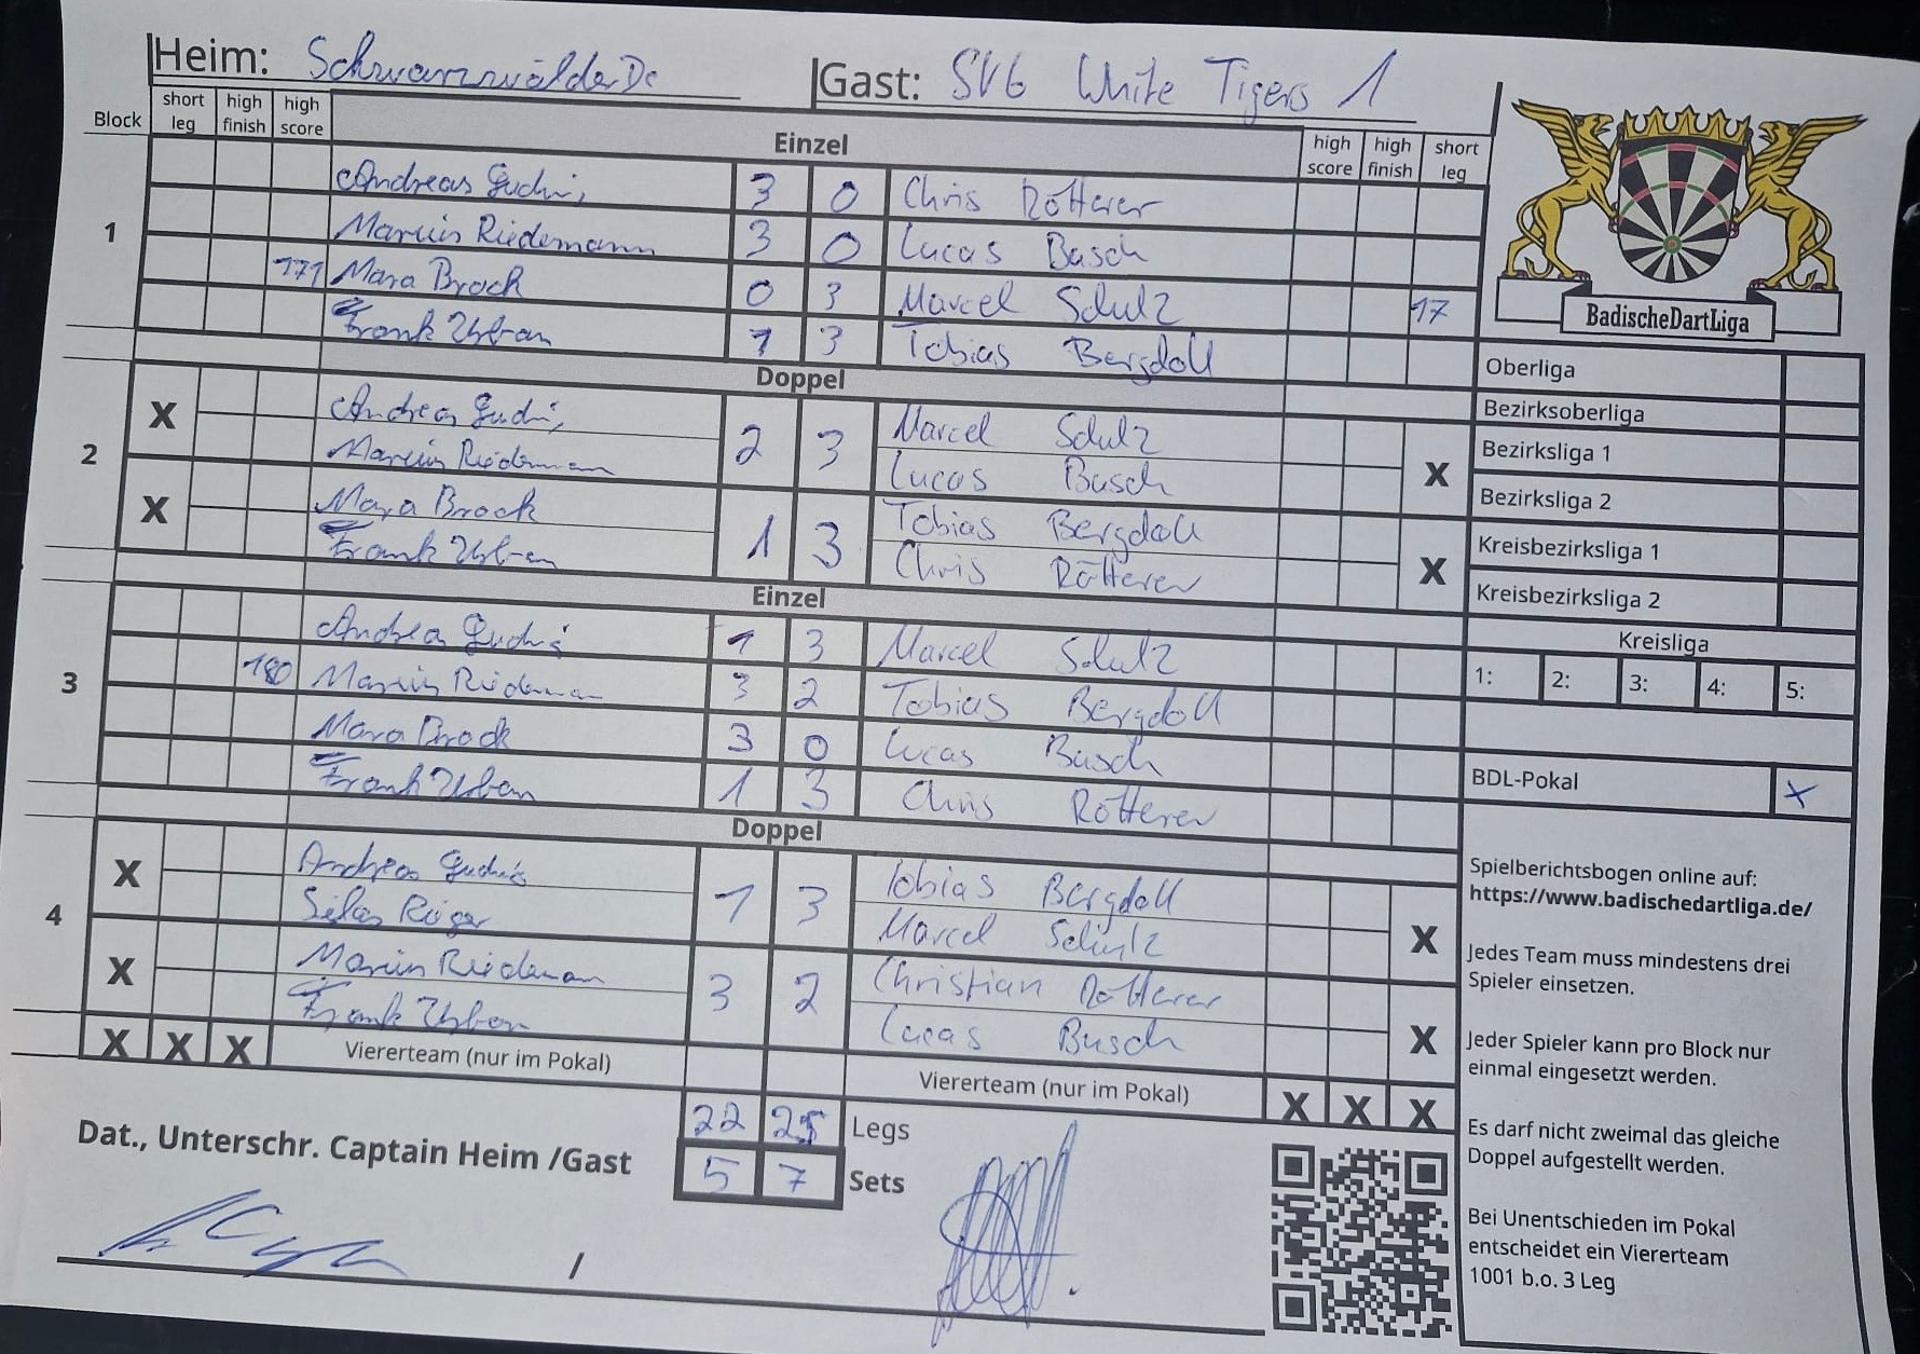 Heim: SchwarzwälderDc Gast: SVG White Tigers 1
Block short leg high finish high score Einzel high score high finish short leg
1
Andreas 3 0 Chris Rötterer
Marcus Riedemann 3 0 Lucas Busch
171 Mara Brock 0 3 Marcel Schulz 17
Frank Urban 1 3 Tobias Bergdoll
Doppel
2
X Andreas 2 3 Marcel Schulz X
Riedeman Lucas Busch
X Mara Brock 1 3 Tobias Bergdoll X
Frank Urban Chris Rötterer
Einzel
3
Andreas 1 3 Marcel Schulz
180 Riedeman 3 2 Tobias Bergdoll
Mara Brock 3 0 Lucas Busch
Frank Urban 1 3 Chris Rötterer
Doppel
4
X Andreas 1 3 Tobias Bergdoll X
Silas Marcel Schulz
X Riedeman 3 2 Christian Rötterer X
Frank Urban Lucas Busch
X X X Viererteam (nur im Pokal) Viererteam (nur im Pokal) X X X
22 25 Legs
Dat., Unterschr. Captain Heim /Gast 5 7 Sets
/
BadischeDartLiga
Oberliga
Bezirksoberliga
Bezirksliga 1
Bezirksliga 2
Kreisbezirksliga 1
Kreisbezirksliga 2
Kreisliga
1: 2: 3: 4: 5:
BDL-Pokal X
Spielberichtsbogen online auf:
https://www.badischedartliga.de/
Jedes Team muss mindestens drei
Spieler einsetzen.
Jeder Spieler kann pro Block nur
einmal eingesetzt werden.
Es darf nicht zweimal das gleiche
Doppel aufgestellt werden.
Bei Unentschieden im Pokal
entscheidet ein Viererteam
1001 b.o. 3 Leg